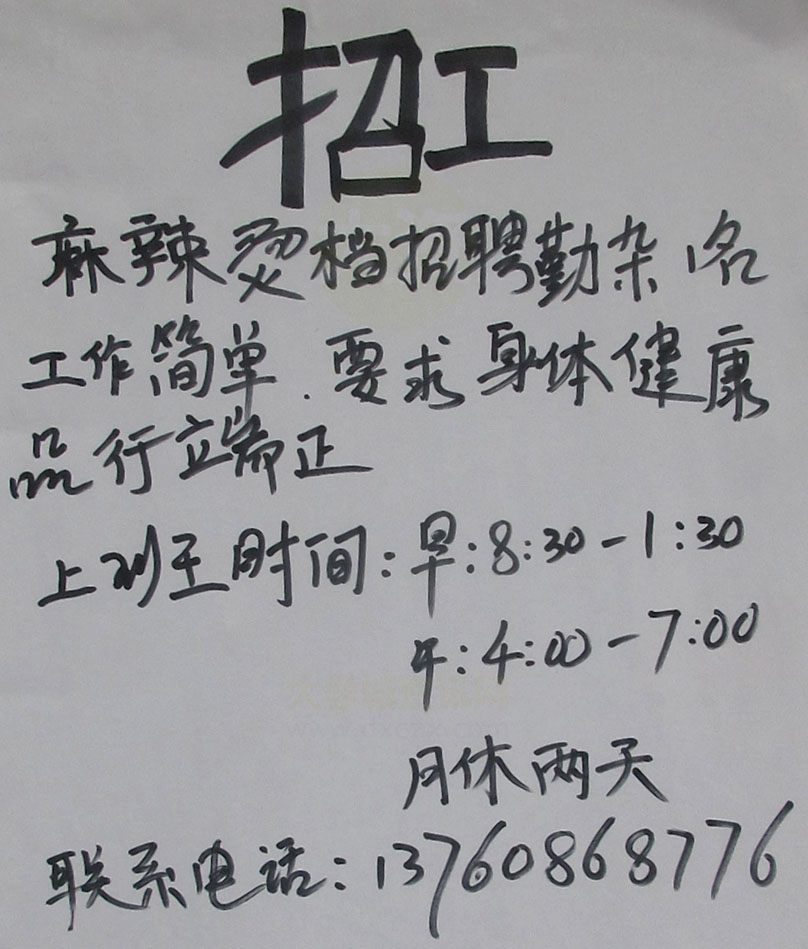 招工
麻辣烫档招聘勤杂1名
工作简单.要求身体健康
品行端正
上班时间:早:8:30-1:30
午:4:00-7:00
月休两天
联系电话:13760868776